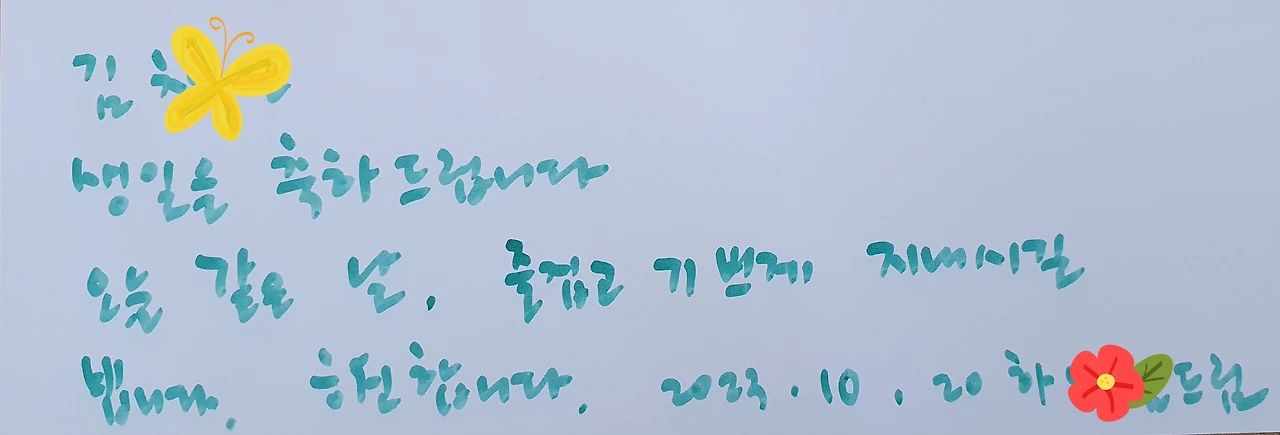 김
생일을 축하드립니다
오늘 같은 날. 즐겁고 기쁘게 지내시길
빕니다. 응원합니다. 2023. 10. 20 하 드림